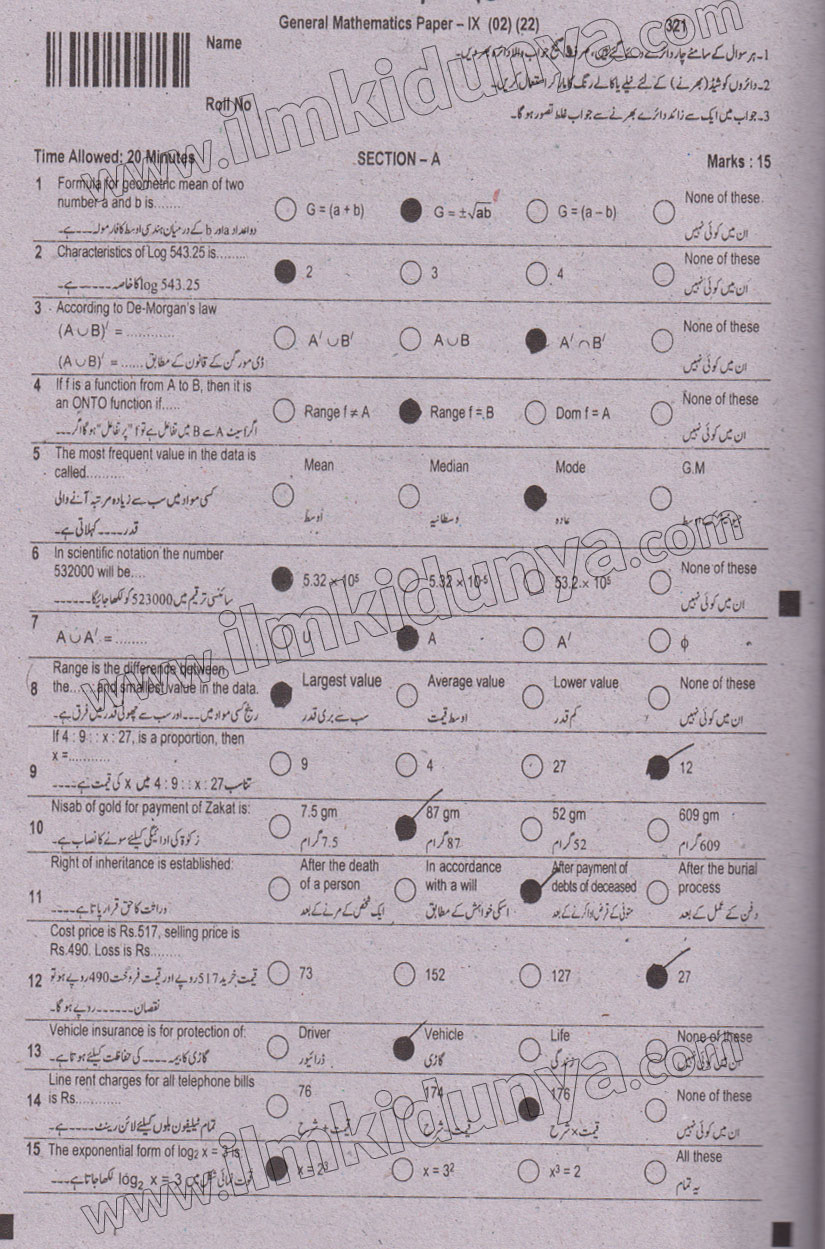 General Mathematics Paper – IX (02) (22)
321
Name
Roll No
1۔ ہر سوال کے سامنے چار دائرے دیئے گئے ہیں، صرف صحیح جواب والا دائرہ بھر دیں۔
2۔ دائروں کو شیڈ (بھرنے) کے لئے نیلے یا کالے رنگ کا مارکر استعمال کریں۔
3۔ جواب میں ایک سے زائد دائرے بھرنے سے جواب غلط تصور ہوگا۔
Time Allowed: 20 Minutes
SECTION – A
Marks : 15
1 Formula for geometric mean of two
number a and b is.......
دو اعداد a اور b کے درمیان ہندسی اوسط کا فارمولہ۔۔۔۔ہے۔
G = (a + b)
G = ±√ab
G = (a – b)
None of these
ان میں کوئی نہیں
2 Characteristics of Log 543.25 is........
log 543.25 کا خاصہ۔۔۔۔۔۔ہے۔
2
3
4
None of these
ان میں کوئی نہیں
3 According to De-Morgan's law
(A ∪ B)′ = ............
(A ∪ B)′ = ...... ڈی مورگن کے قانون کے مطابق
A′ ∪ B′
A ∪ B
A′ ∩ B′
None of these
ان میں کوئی نہیں
4 If f is a function from A to B, then it is
an ONTO function if.....
Range f ≠ A
Range f = B
Dom f = A
None of these
ان میں کوئی نہیں
5 The most frequent value in the data is
called..........
کسی مواد میں سب سے زیادہ مرتبہ آنے والی
قدر۔۔۔۔کہلاتی ہے۔
Mean
اوسط
Median
وسطانیہ
Mode
عادہ
G.M
6 In scientific notation the number
532000 will be....
سائنسی ترقیم میں 523000 کو لکھا جائیگا۔۔۔۔۔۔
5.32 × 10⁵
5.32 × 10⁻⁵
53.2 × 10⁵
None of these
ان میں کوئی نہیں
7 A ∪ A′ = ........
U
A
A′
ϕ
8 Range is the difference between
the......and smallest value in the data.
رینج کسی مواد میں۔۔۔اور سب سے چھوٹی قدر میں فرق ہے۔
Largest value
سب سے بری قدر
Average value
اوسط قیمت
Lower value
کم قدر
None of these
ان میں کوئی نہیں
9 If 4 : 9 : : x : 27, is a proportion, then
x =..........
تناسب 4 : 9 : : x : 27 میں x کی قیمت ہے۔۔۔۔
9
4
27
12
10 Nisab of gold for payment of Zakat is:
زکوۃ کی ادائیگی کیلئے سونے کا نصاب ہے۔
7.5 gm
7.5 گرام
87 gm
87 گرام
52 gm
52 گرام
609 gm
609 گرام
11 Right of inheritance is established:
وراثت کا حق قرار پاتا ہے۔۔۔۔
After the death
of a person
ایک شخص کے مرنے کے بعد
In accordance
with a will
اسکی خواہش کے مطابق
After payment of
debts of deceased
متوفی کے قرض ادا کرنے کے بعد
After the burial
process
دفن کے عمل کے بعد
12 Cost price is Rs.517, selling price is
Rs.490. Loss is Rs........
قیمت خرید 517 روپے اور قیمت فروخت 490 روپے ہو تو
نقصان۔۔۔۔۔۔روپے ہوگا۔
73
152
127
27
13 Vehicle insurance is for protection of:
گاڑی کا بیمہ۔۔۔۔کی حفاظت کیلئے ہوتا ہے۔
Driver
ڈرائیور
Vehicle
گاڑی
Life
زندگی
None of these
ان میں کوئی نہیں
14 Line rent charges for all telephone bills
is Rs...........
تمام ٹیلیفون بلوں کیلئے لائن رینٹ۔۔۔۔۔ہے۔
76
قیمت + شرح
174
قیمت - شرح
176
قیمت × شرح
None of these
ان میں کوئی نہیں
15 The exponential form of log₂ x = 3 is
log₂ x = 3 قوت نمائی شکل میں لکھا جاتا ہے۔۔۔
x = 2³
x = 3²
x³ = 2
All these
یہ تمام
www.ilmkidunya.com
www.ilmkidunya.com
www.ilmkidunya.com